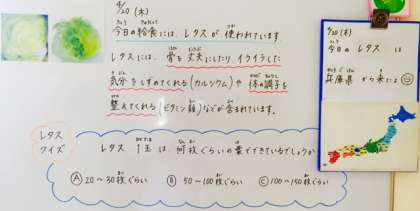 4/20 (木)
今日の給食には、レタスが使われています
レタスには、骨を丈夫にしたり、イライラした
気分をしずめてくれる(カルシウム)や体の調子を
整えてくれる(ビタミン類)などが含まれています。
レタス
クイズ
レタス 1玉は何枚ぐらいの葉でできているでしょうか
Ⓐ 20～30枚ぐらい Ⓑ 50～100枚ぐらい Ⓒ 100～150枚ぐらい
4/20 (木)
今日のレタスは
兵庫県から来たよ